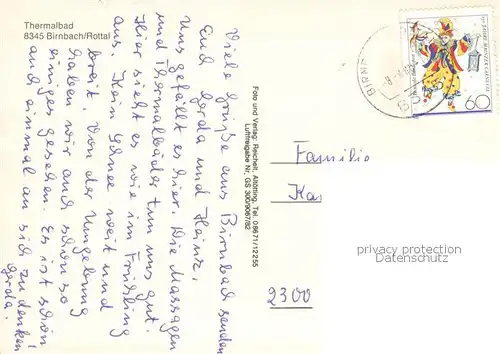 Thermalbad
8345 Birnbach/Rottal
Viele Grüße aus Birnbach senden
Euch Gerda und Heinz.
Uns gefällt es hier. Die Massagen
und Thermalbäder tun uns gut.
Hier sieht es wie im Frühling
aus. Kein Schnee weit und
breit. Von der Umgebung
haben wir auch schon so
einiges gesehen. Es ist schön
auch einmal an sich zu denken
Gerda!
Foto und Verlag: Reichelt, Altötting, Tel. 08671/12255
Luftfreigabe Nr. GS 300/9067/82
BIRN
60
Familie
Kas
2300
privacy protection
Datenschutz